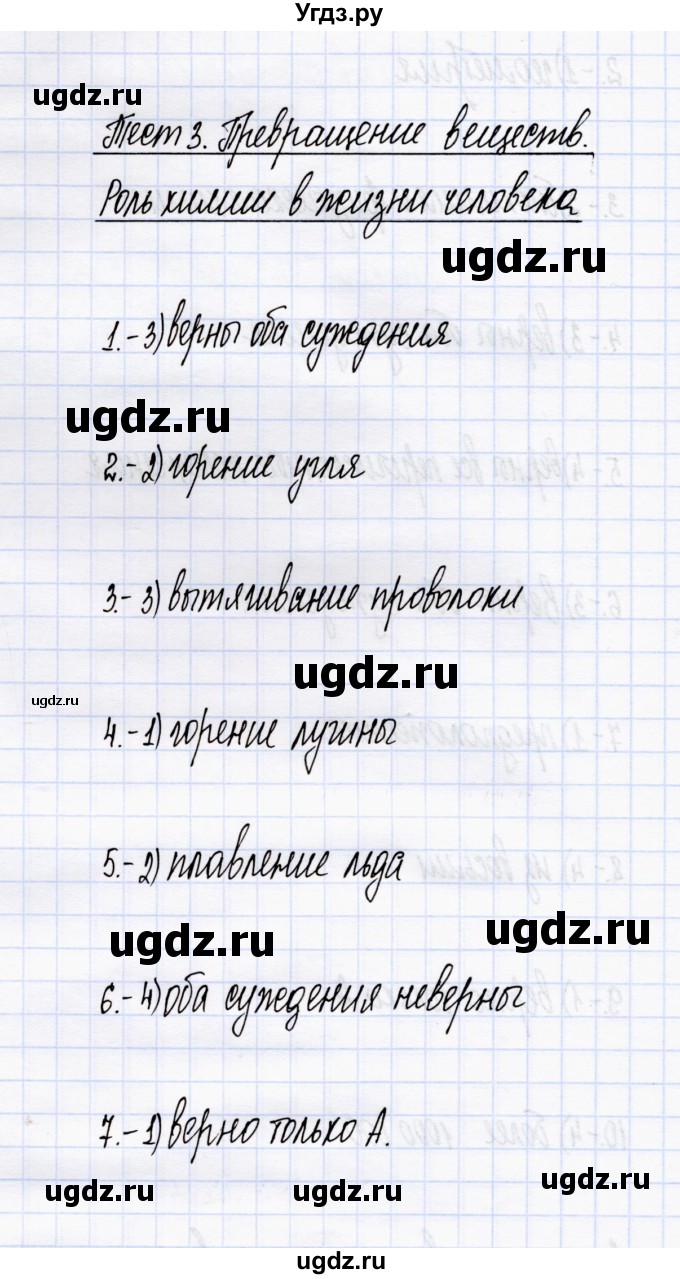 Угдз.ру
ugdz.ru
Тест 3. Превращение веществ.
Роль химии в жизни человека
ugdz.ru
1.-3) верны оба суждения
ugdz.ru
2.-2) горение угля
3.-3) вытягивание проволоки
ugdz.ru
ugdz.ru
4.-1) горение лучины
5.-2) плавление льда
ugdz.ru
ugdz.ru
6.-4) оба суждения неверны
7.-1) верно только А.
ugdz.ru
ugdz.ru
ugdz.ru
ugdz.ru